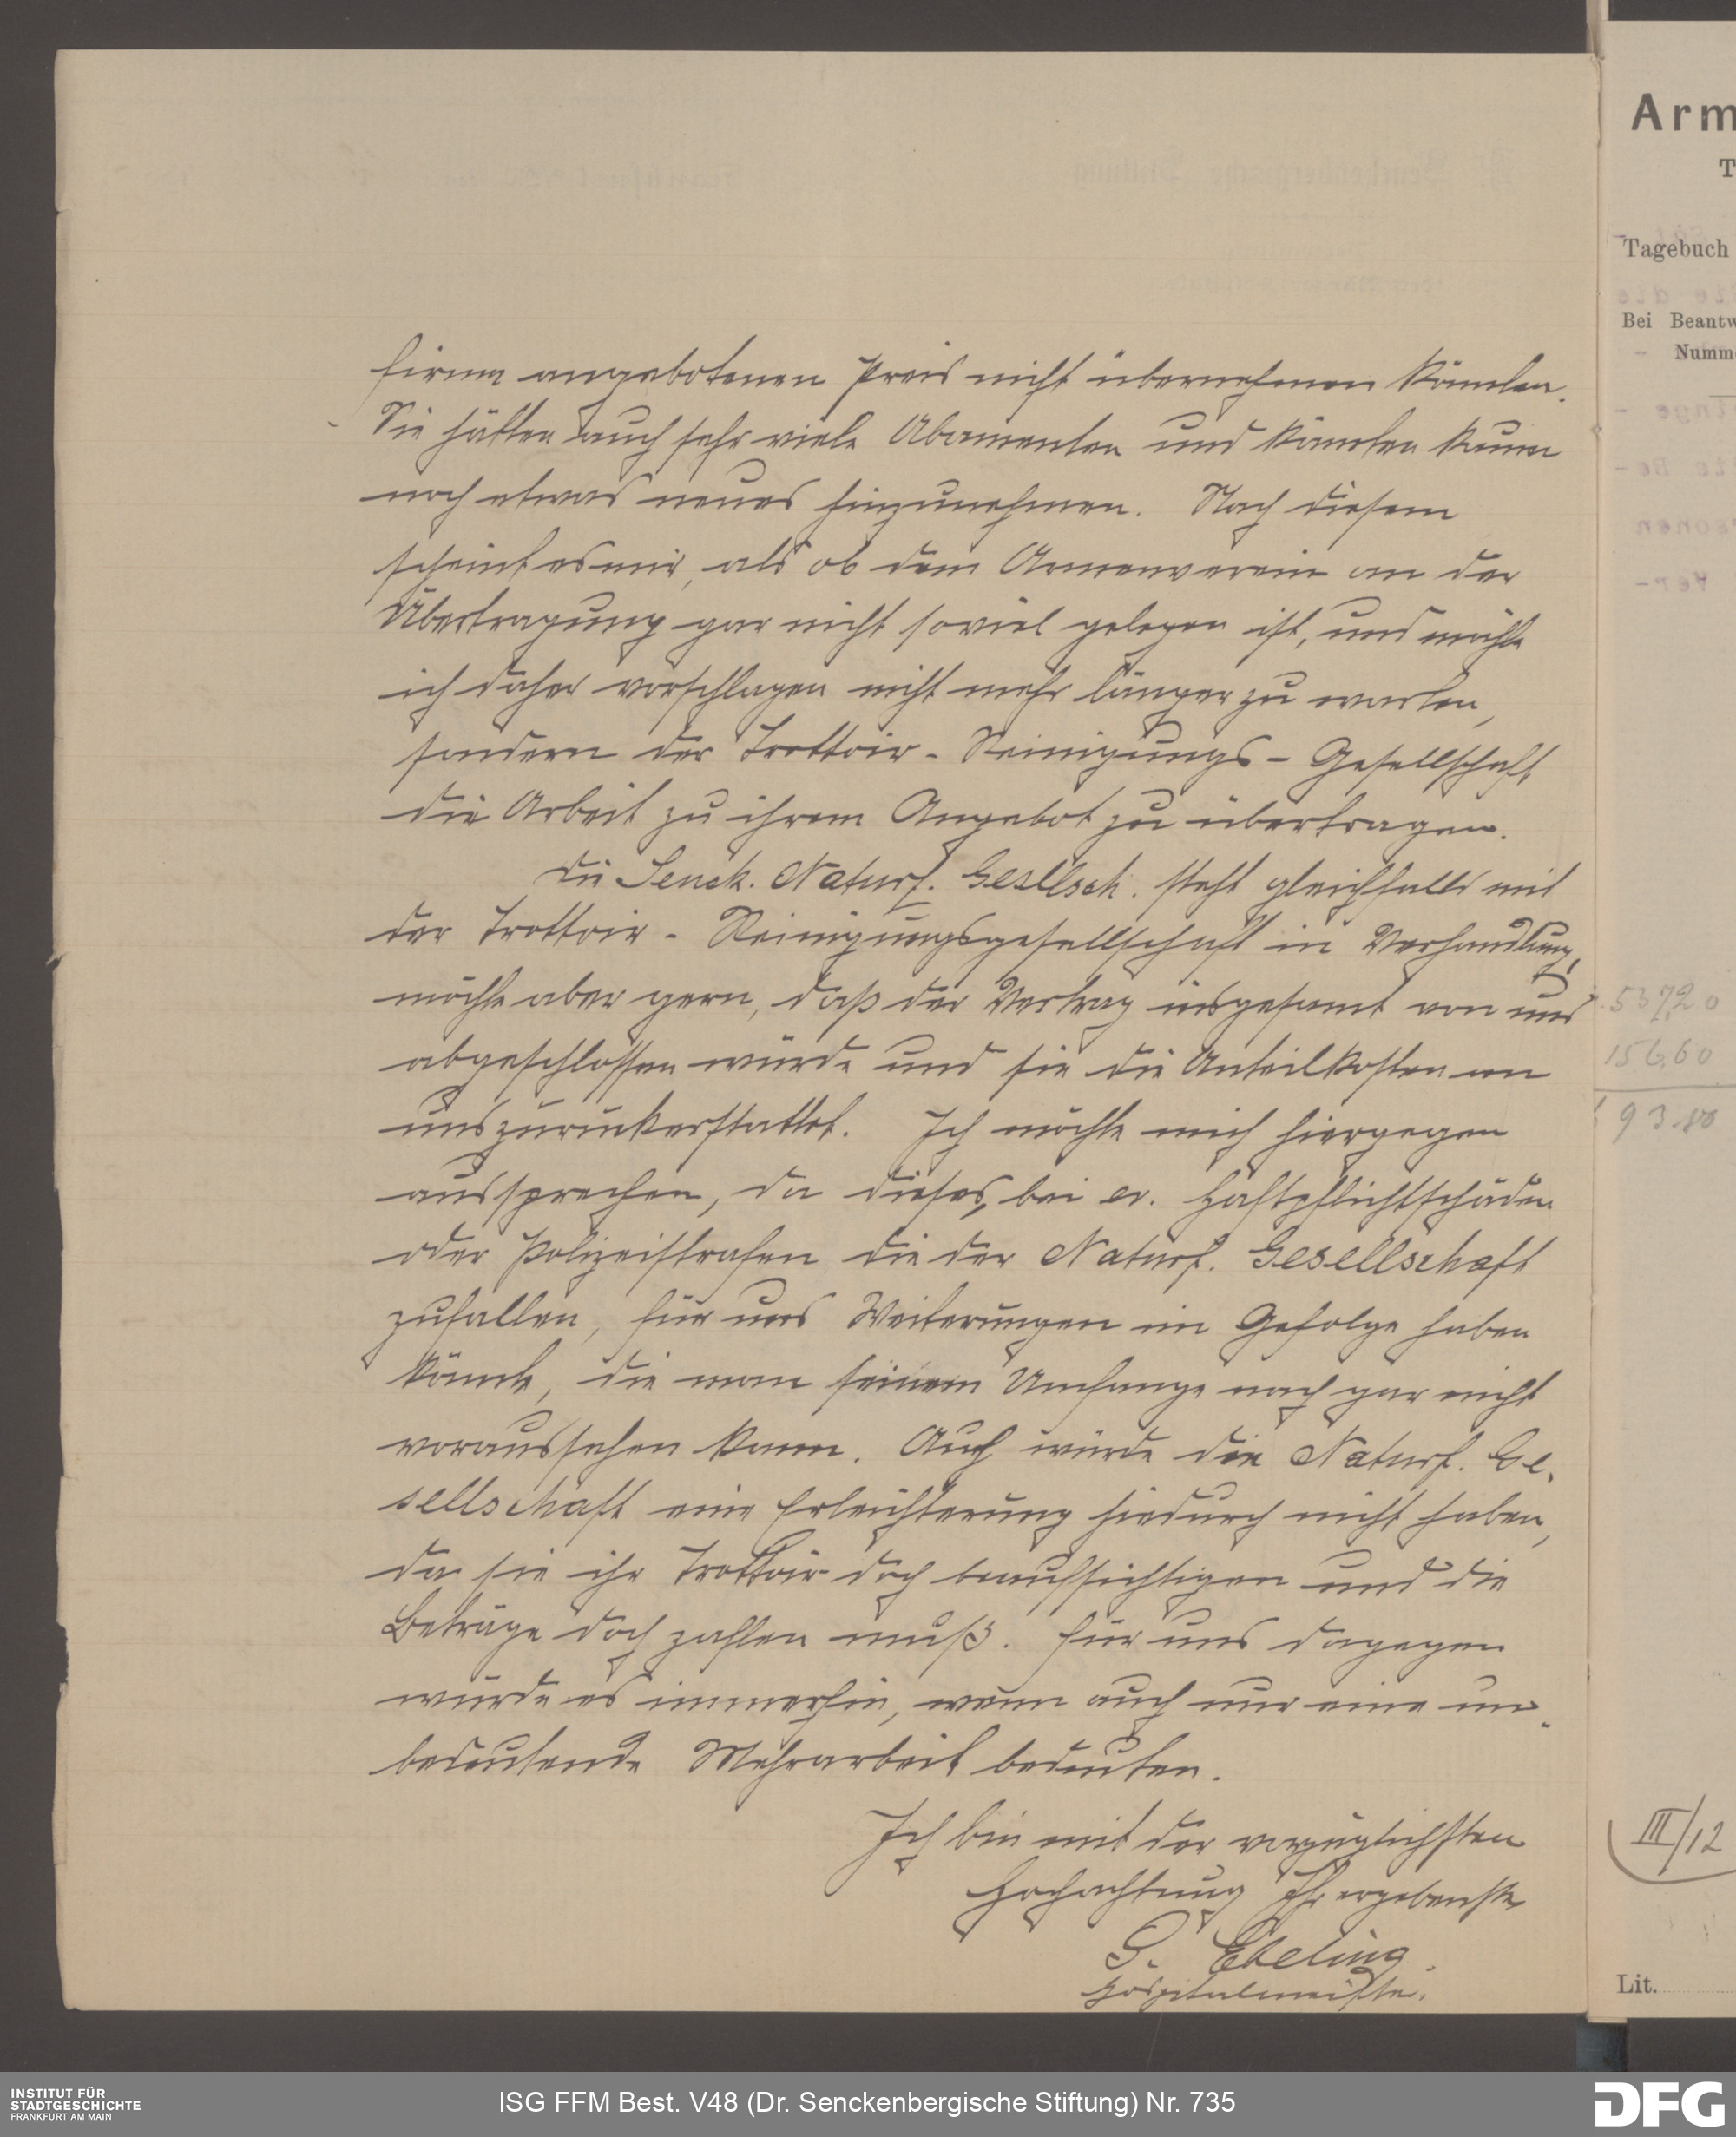 firma angebotenen Preis nicht übernehmen könnten.
Sie hätten auch sehr viele Abonnenten und könnten kaum
noch etwas neues hinzunehmen. Nach diesem
scheint es mir, als ob dem Armenverein an der
Übertragung gar nicht soviel gelegen ist, und möchte
ich daher vorschlagen nicht mehr länger zu warten,
sondern der Trottoir-Reinigungs-Gesellschaft
die Arbeit zu ihrem Angebot zu übertragen.
Die Senck. Naturf. Gesellsch. steht gleichfalls mit
der Trottoir-Reinigungsgesellschaft in Verhandlung,
möchte aber gern, daß der Vertrag insgesamt von uns
abgeschlossen würde und sie die Anteilkosten an
uns zurückerstattet. Ich möchte mich hiergegen
aussprechen, da dieses, bei ev. Haftpflichtschäden
oder Polizeistrafen die der Naturf. Gesellschaft
zufallen, für uns Weiterungen im Gefolge haben
könnte, die man seinem Umfange nach gar nicht
voraussehen kann. Auch würde die Naturf. Ge-
sellschaft eine Erleichterung hiedurch nicht haben,
da sie ihr Trottoir doch beaufsichtigen und die
Beträge doch zahlen muß. Für uns dagegen
würde es immerhin, wenn auch nur eine un-
bedeutende Mehrarbeit bedeuten.
Ich bin mit der vorzüglichsten
Hochachtung Ihr ergebenster
G. Ebeling.
Hospitalmeister.
Arm
T
Tagebuch
Bei Beantw
Numm
537,20
156,60
693.80
III/12
Lit.
INSTITUT FÜR
STADTGESCHICHTE
FRANKFURT AM MAIN
ISG FFM Best. V48 (Dr. Senckenbergische Stiftung) Nr. 735
DFG